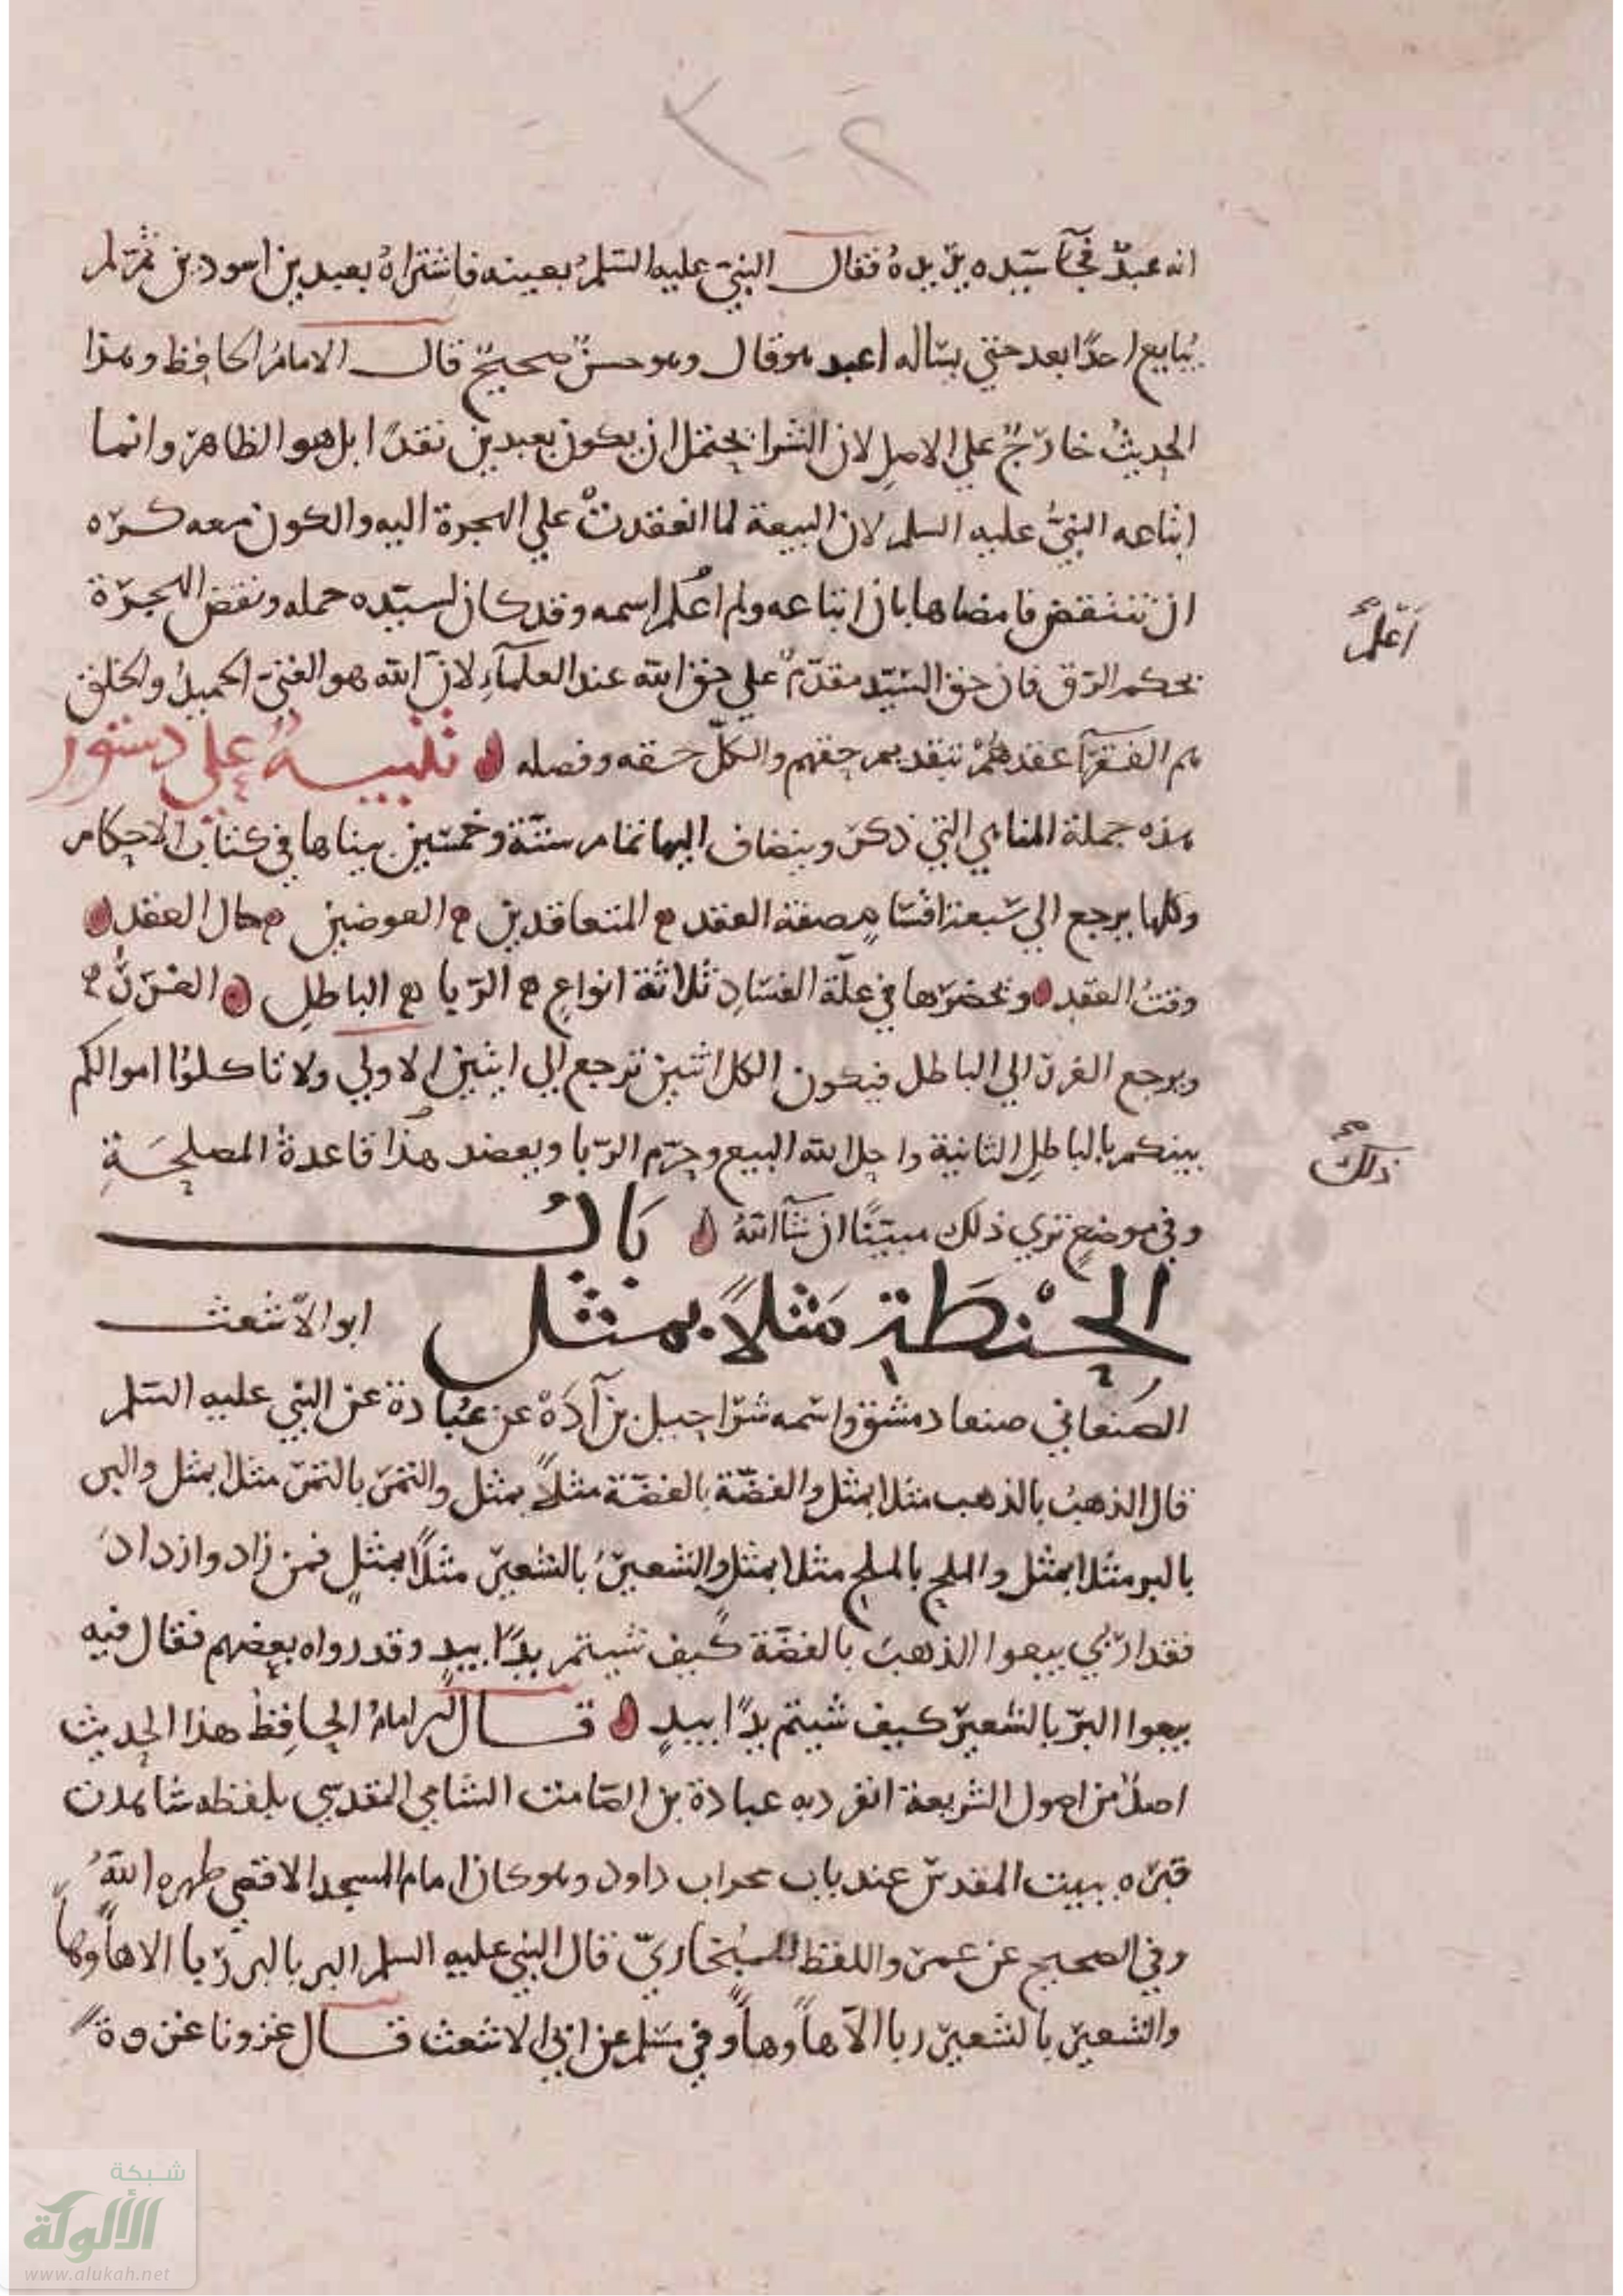 انه عبدٌ فجآ سيّده يريده فقال النبيّ عليه السّلم بعينه فاشتراه بعبدين اسودين ثمّ لم
يُبايع احدًا بعد حتى يسٔاله اعبد هو قال وهو حسنٌ صحيحٌ قال الامامُ الحافظ وهذا
الحديثُ خارجٌ على الاصلِ لان الشرا يحتمل ان يكون بعبدين نقدًا بل هو الظاهر وانما
ابتاعه النبيُّ عليه السلم لان البيعة لما انعقدتْ على الهجرة اليه والكون معه كره
ان تنتقض فامضاها بان ابتاعه ولم اعُلم اسمه وقد كان لسيّده حمله ونقض الهجرة
أعلم
بحكم الرق فان حق السّيد مقدّمٌ على حق الله عند العلمآءِ لانّ الله هو الغنيّ الحميدُ والخلق
هم الفقرآ عقدهمْ بتقديم حقهم والكلّ حقه وفضله تنبيهٌ على دستور
هذه جملة المناهي التي ذكر وينضاف اليها تمام ستّة وخمسين بيناها في كتاب الاحكام
وكلها يرجع الى سبعة اقسامٍ صفة العقد المتعاقدين العوضين حال العقد
وقتُ العقد ونحصرها في علّة الفسادِ ثلاثة انواعٍ الرّبا الباطلِ الغررُ
ويرجع الغرر الى الباطل فيكون الكل اثنين ترجع الى ايتين الاولى ولا تاكلوُا اموالكم
بينكم بالباطلِ الثانية واحل الله البيع وحرّم الرّبا ويعضد هذا قاعدةُ المصلحَةِ
ذلك
وفي موضعٍ ترى ذلك مبيّنًا ان شآ اللهُ بَابُ
الحنْطَةِ مَثلاً بمثل ابو الاشعث
الصّنعاني صنعا دمشق واسمه شراحيل بن آدَهْ عن عبُادة عن النبي عليه السّلم
قال الذهبُ بالذهب مثلا بمثل والفضّة بالفضّة مثلاً بمثل والتمر بالتمر مثلا بمثل والبر
بالبر مثلا بمثل والملح بالملح مثلا بمثل والشعيرُ بالشعير مثلاً بمثلٍ فمن زاد وازدادَ
فقد اربى بيعوا الذهبَ بالفضّة كيف شيتم يدًا بيدٍ وقد رواه بعضهم فقال فيه
بيعوا البرّ بالشعير كيف شيتم يدًا بيدٍ قال الامامُ الحافِظُ هذا الحديث
اصلٌ من اصول الشريعة انفرد به عبادة بن الصّامت الشامي المقدسي بلفظه شاهدت
قبره ببيت المقدس عند باب محراب داود وهو كان امام المسجد الاقصى طهره اللهُ
وفي الصحيح عن عمر واللفظ للبُخاريّ قال النبي عليه السلم البر بالبر رّبا الا هاً وهاً
والشعير بالشعير ربا الاّ هاً وهاً وفي مسلم عن ابي الاشعث قال غزونا غزوةً
شبكة
الألوكة
www.alukah.net